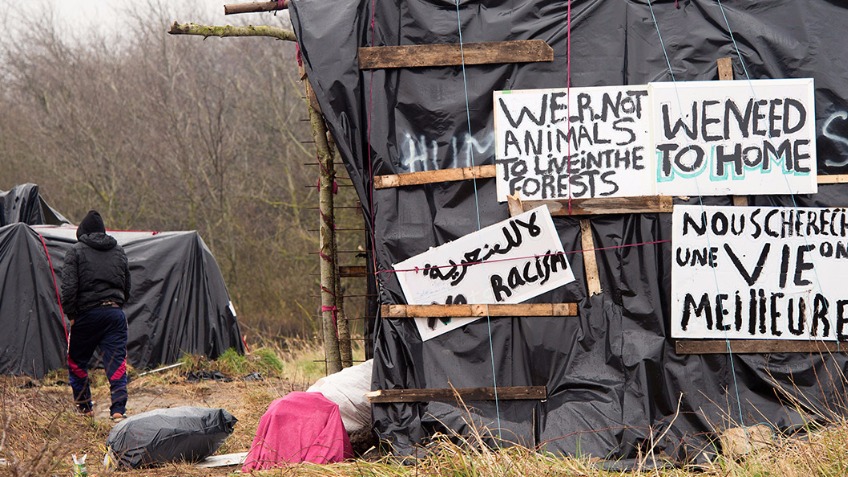 WE.R.NOT
ANIMALS
TO LIVE IN THE
FORESTS
WE NEED
TO HOME
HUM
لا للعنصرية
NO RACISM
NOUS CHERECH
ON
UNE VIE
MEILLEURE